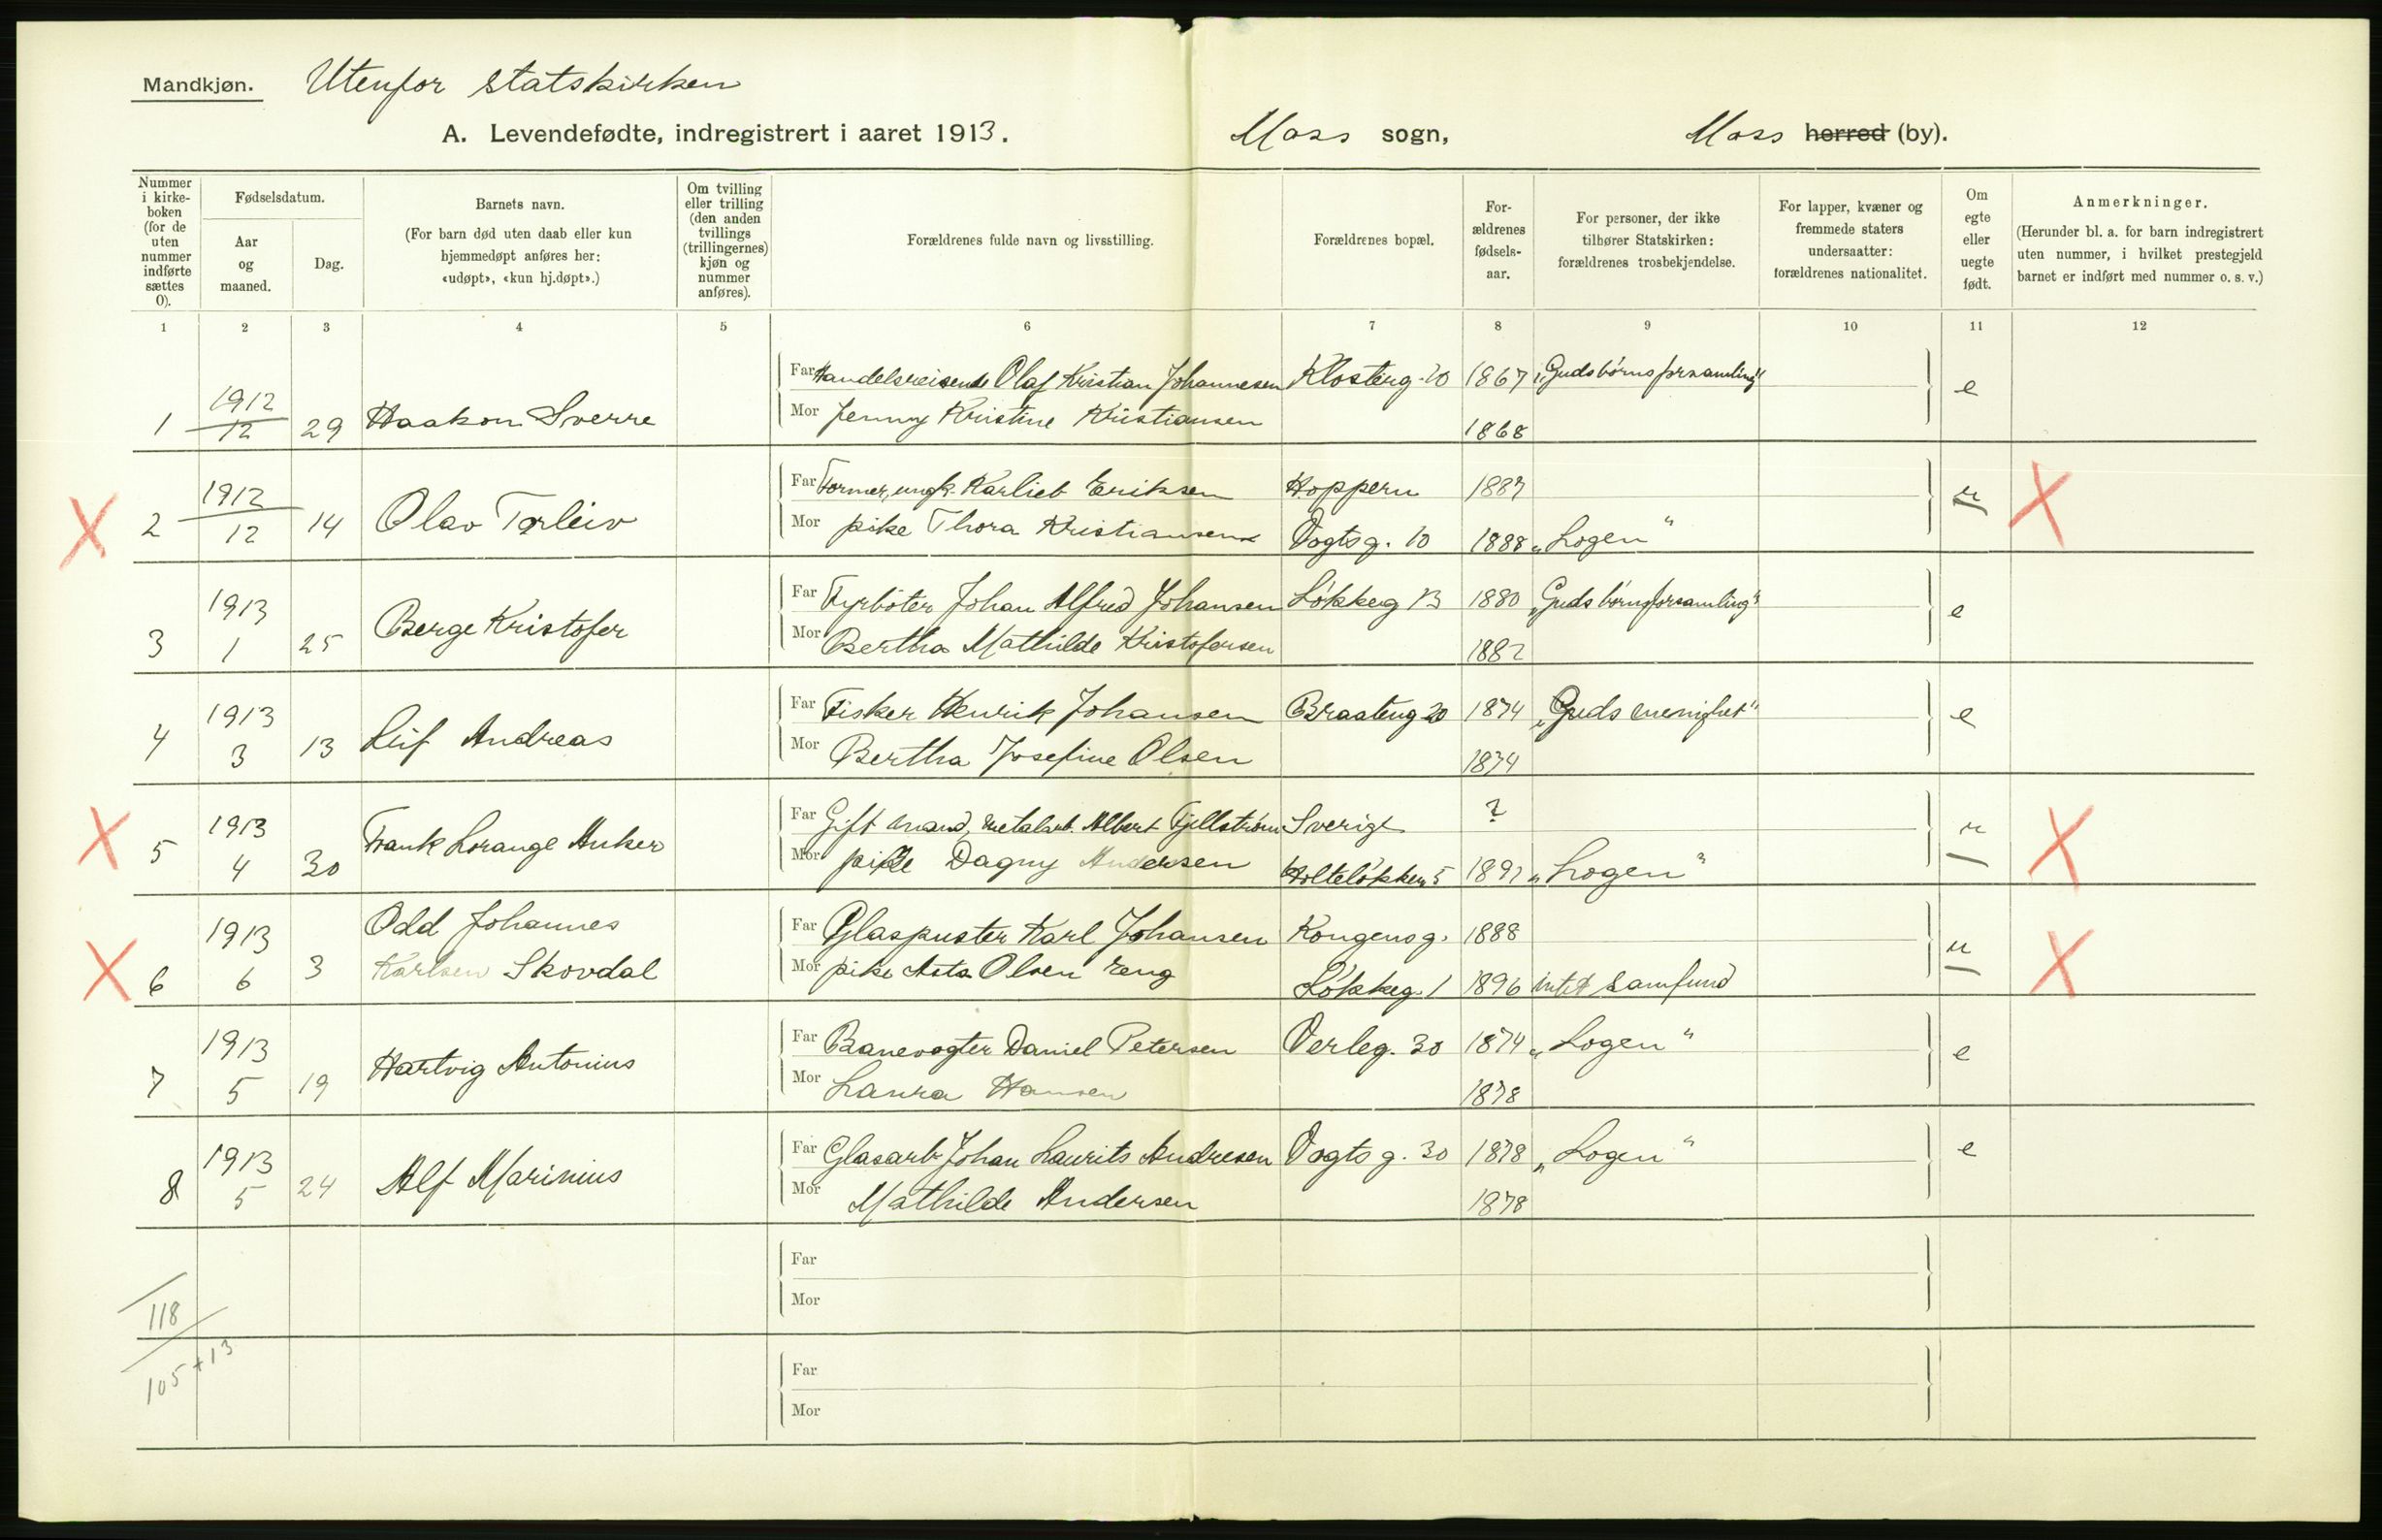 Mandkjøn. Utenfor statskirken
A. Levendefødte, indregistrert i aaret 1913. Moss sogn, Moss herred (by).
Nummer i kirke-boken (for de uten nummer indførte sættes 0).
Fødselsdatum.
Aar og maaned.
Dag.
Barnets navn.
(For barn død uten daab eller kun hjemmedøpt anføres her: «udøpt», «kun hj.døpt».)
Om tvilling eller trilling (den anden tvillings (trillingernes) kjøn og nummer anføres).
Forældrenes fulde navn og livsstilling.
Forældrenes bopæl.
For-ældrenes fødsels-aar.
For personer, der ikke tilhører Statskirken: forældrenes trosbekjendelse.
For lapper, kvæner og fremmede staters undersaatter: forældrenes nationalitet.
Om egte eller uegte født.
Anmerkninger.
(Herunder bl. a. for barn indregistrert uten nummer, i hvilket prestegjeld barnet er indført med nummer o. s. v.)
1 2 3 4 5 6 7 8 9 10 11 12
Far Handelsreisende Olaf Kristian Johannesen Klosterg. 20 1867 "Guds børns forsamling" e
1 1912 12 29 Haakon Sverre
Mor Jenny Kristine Kristiansen 1868
Far Former, ungk. Karlieb Eriksen Hoppern 1887 u X
X 2 1912 12 14 Olav Torleiv
Mor pike Thora Kristiansen Vogtsg. 10 1888 "Logen"
Far Fyrbøter Johan Alfred Johansen Løkkeg 13 1880 "Guds børns forsamling" e
3 1913 1 25 Berge Kristofer
Mor Bertha Mathilde Kristofersen 1882
Far Fisker Henrik Johansen Braateng 20 1874 "Guds menighet" e
4 1913 3 13 Leif Andreas
Mor Bertha Josefine Olsen 1874
Far Gift mand, metalarb. Albert Fjellstrøm Sverige ? u X
X 5 1913 4 30 Frank Lorange Anker
Mor pike Dagny Andersen Holteløkken 5 1891 "Logen"
Far Glaspuster Karl Johansen Kongensg. 1888 u X
X 6 1913 6 3 Odd Johannes
Karlsen Skovdal
Mor pike Asta Olsen Løkkeg. 1 1896 intet samfund
Far Banevogter Daniel Petersen Verleg. 30 1874 "Logen" e
7 1913 5 19 Hartvig Antonius
Mor Laura Hansen 1878
Far Glasarb Johan Laurits Andresen Vogtsg. 30 1878 "Logen" e
8 1913 5 24 Alf Marinius
Mor Mathilde Andersen 1878
Far
Mor
118
105+13
Far
Mor